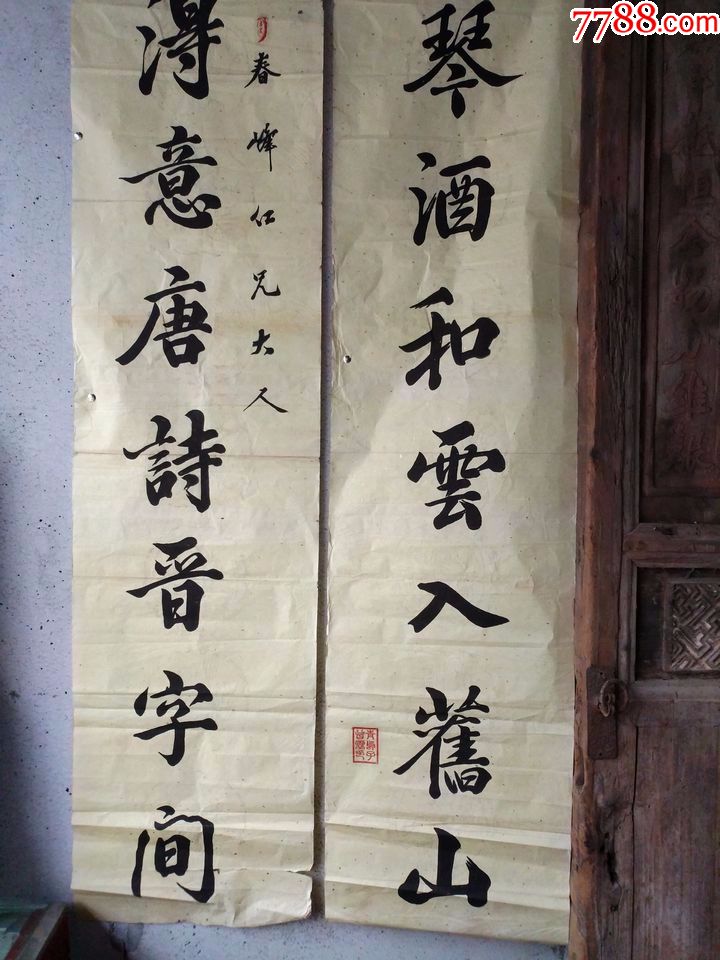 7788.com
琴酒和雲入舊山
春峰仁兄大人
得意唐詩晉字間